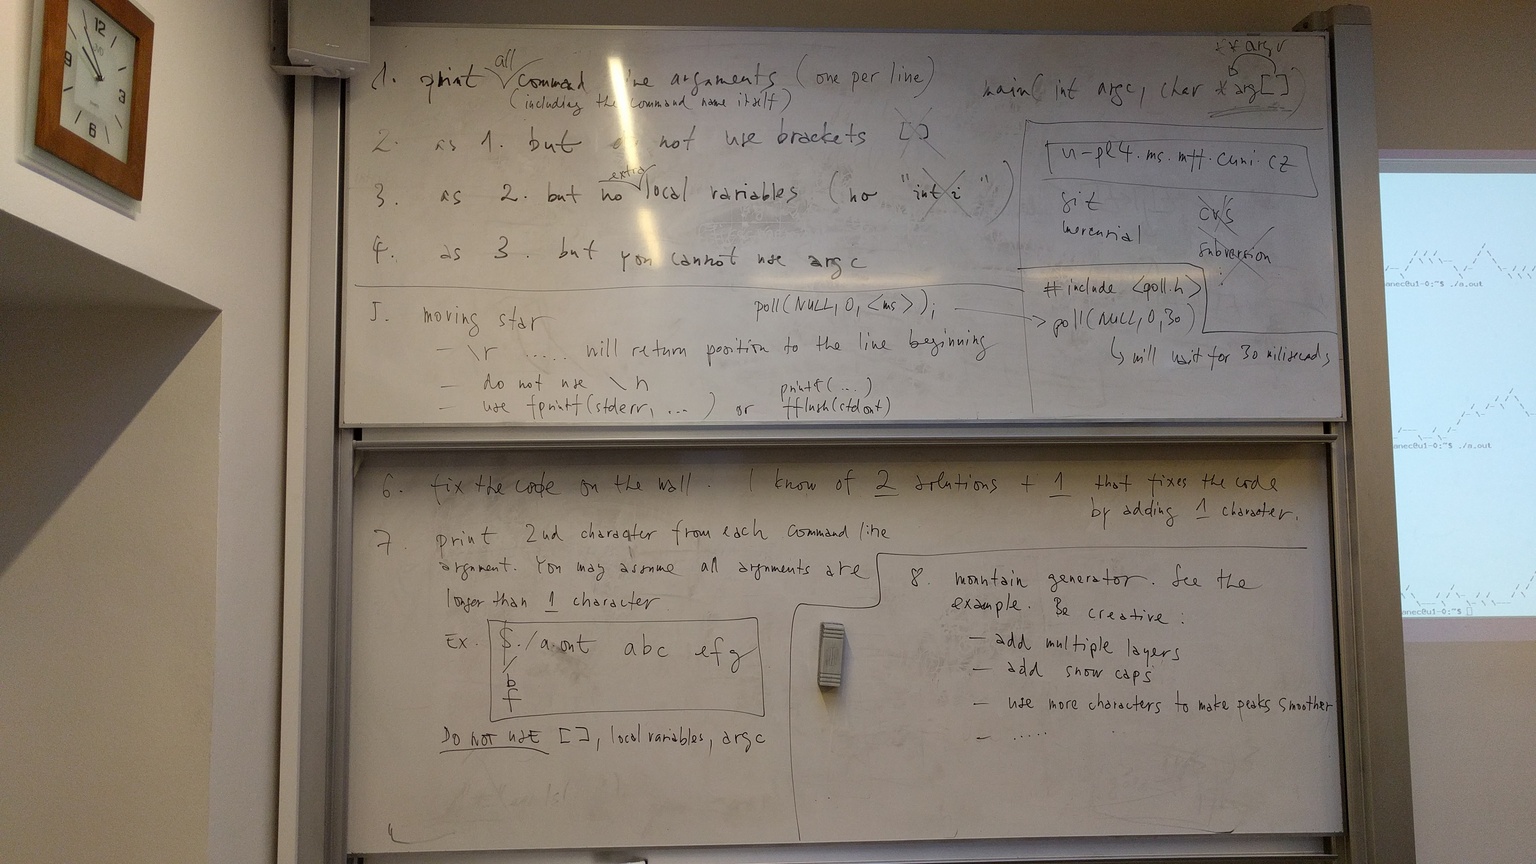 12
3
6
9
1. print all command line arguments (one per line)
(including the command name itself)
2. as 1. but do not use brackets []
3. as 2. but no extra local variables (no "int i")
4. as 3. but you cannot use argc
**argv
main(int argc, char *arg[])
u-pl4.ms.mff.cuni.cz
git
mercurial
CVS
subversion
:
#include <poll.h>
poll(NULL,0,30)
↳ will wait for 30 miliseconds
5. moving star
poll(NULL, 0, <ms>);
- \r ..... will return position to the line beginning
- do not use \n
- use fprintf(stderr, ...) or printf(...)
fflush(stdout)
6. fix the code on the wall. I know of 2 solutions + 1 that fixes the code
by adding 1 character.
7. print 2nd character from each command line
argument. You may assume all arguments are
longer than 1 character.
Ex. $ ./a.out abc efg
/
b
f
DO NOT USE [], local variables, argc
8. mountain generator. See the
example. Be creative:
- add multiple layers
- add snow caps
- use more characters to make peaks smoother
- .....
anec@u1-0:~$ ./a.out
anec@u1-0:~$ ./a.out
anec@u1-0:~$